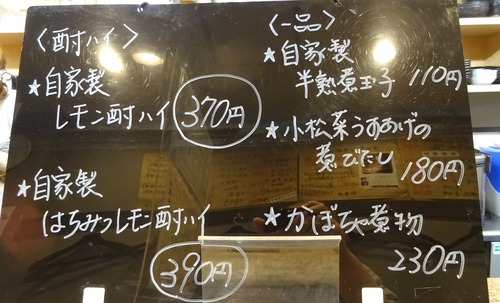 〈酎ハイ〉
★自家製
レモン酎ハイ 370円
★自家製
はちみつレモン酎ハイ
390円
〈一品〉
★自家製
半熟煮玉子 110円
★小松菜うすあげの
煮びたし 180円
★かぼちゃ煮物
230円